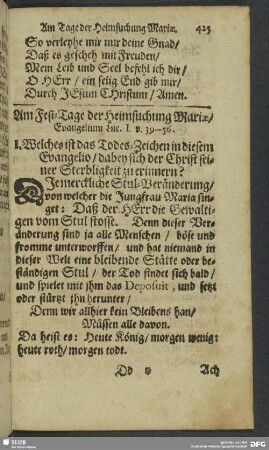 Am Tage der Heimsuchung Mariæ. 425
So verleyhe mir nur deine Gnad/
Daß es gescheh mit Freuden/
Mein Leib und Seel befehl ich dir/
O HErr/ ein selig End gib mir/
Durch JEsum CHristum/ Amen.
Am Fest-Tage der Heimsuchung Mariæ/
Evangelium Luc. I. v. 39–56.
1. Welches ist das Todes-Zeichen in diesem
Evangelio/ dabey sich der Christ seiner
Sterbligkeit zu erinnern?
Die merckliche Stul-Veränderung/
von welcher die Jungfrau Maria sin-
get: Daß der HErr die Gewalti-
gen vom Stul stosse. Denn dieser Ver-
änderung sind ja alle Menschen/ böse und
fromme unterworffen/ und hat niemand in
dieser Welt eine bleibende Stätte oder be-
ständigen Stul/ der Tod findet sich bald/
und spielet mit ihm das Deposuit, und setzt
oder stürtzt ihn herunter/
Denn wir allhier kein Bleibens han/
Müssen alle davon.
Da heist es: Heute König/ morgen wenig:
heute roth/ morgen todt.
Dd v Ach
SLUB